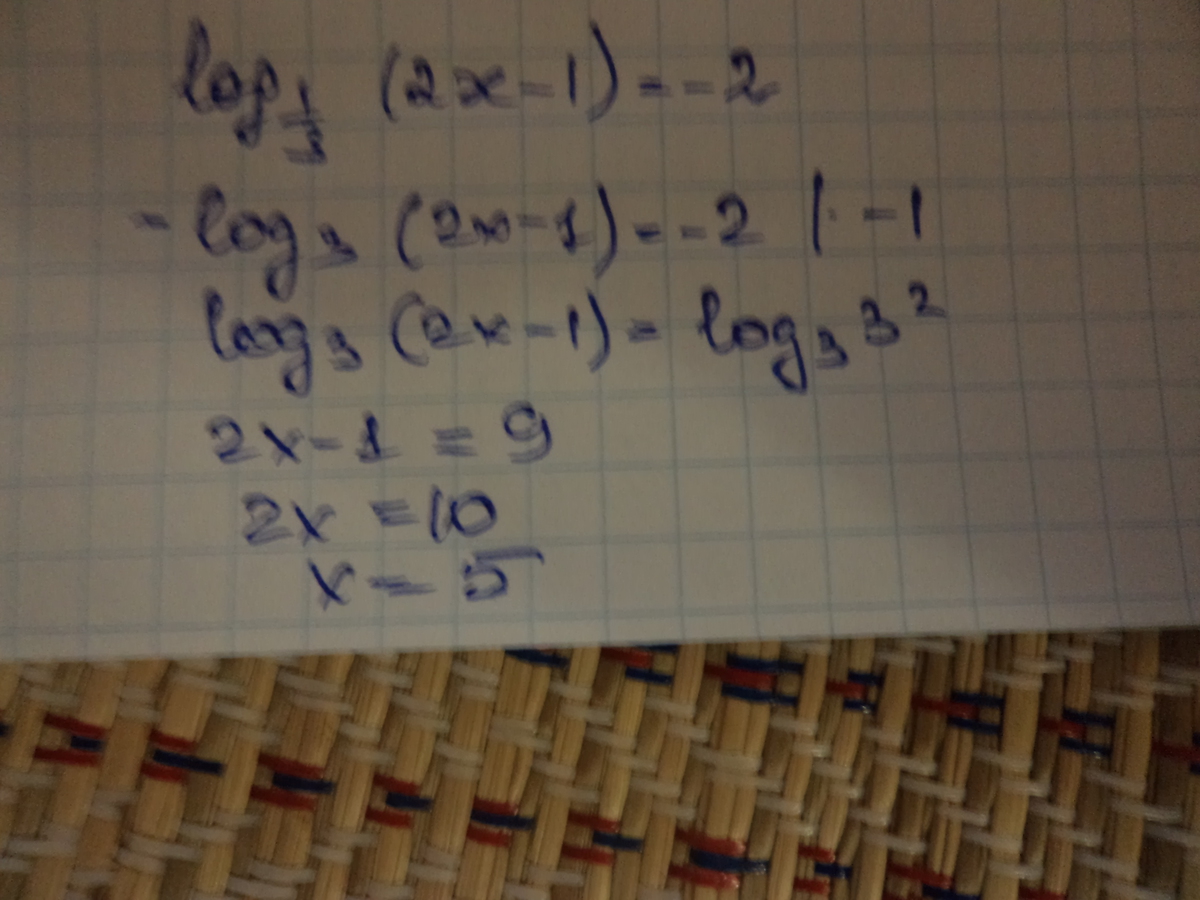 log_{1/3} (2x-1) = -2
-log_3 (2x-1) = -2 |· -1
log_3 (2x-1) = log_3 3^2
2x-1 = 9
2x = 10
x = 5